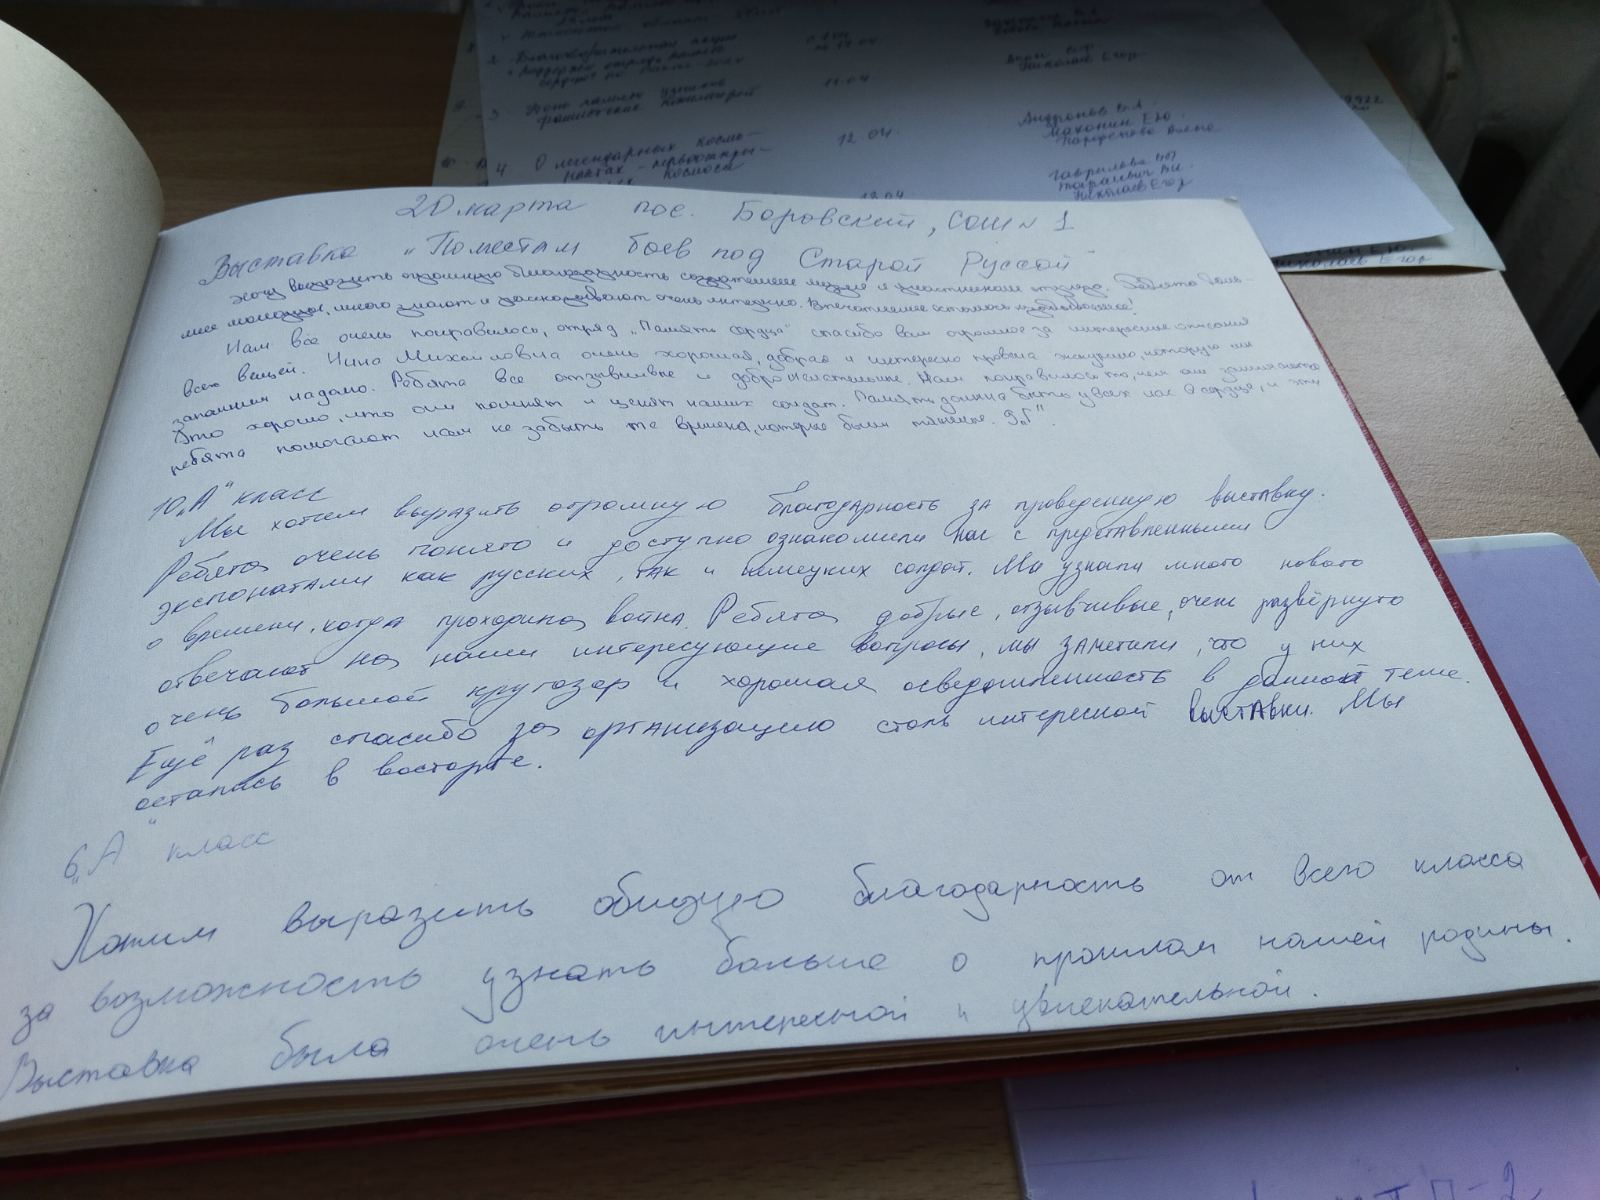 Благотворительная акция
3 День памяти узников
11.04
фашистских концлагерей
4 О легендарных космо-
12.04.
навтах - первооткры-
космоса
12.04
Андронов В.А.
Махонин Е.Ю.
Гаврилова
Николаев Егор
Николаев Егор
20 марта пос. Боровский, СОШ № 1
Выставка "По местам боев под Старой Руссой"
Хочу выразить огромную благодарность создателям музея и участникам отряда. Ребята боль-
шие молодцы, много знают и рассказывают очень интересно. Впечатление осталось
Нам всё очень понравилось, отряд "Память сердца" спасибо вам огромное за интересные описания
всех вещей. Нина Михайловна очень хорошая, добрая и интересно провела экскурсию, которую мы
запомним надолго. Ребята все отзывчивые и доброжелательные. Нам понравилось то, чем они занимаются
Это хорошо, что они помнят и ценят наших солдат. Память должна быть у всех нас в сердце, и эти
ребята помогают нам не забыть те времена, которые были тяжелые. 9 "Г".
10 "А" класс
Мы хотим выразить огромную благодарность за проведенную выставку.
Ребята очень понято и доступно ознакомили нас с представленными
экспонатами как русских, так и немецких солдат. Мы узнали много нового
о времени, когда проходила война. Ребята добрые, отзывчивые, очень развёрнуто
отвечают на наши интересующие вопросы, мы заметили, что у них
очень большой кругозор и хорошая осведомленность в данной теме.
Ещё раз спасибо за организацию столь интересной выставки. Мы
остались в восторге.
6 "А" класс
Хотим выразить общую благодарность от всего класса
за возможность узнать больше о прошлом нашей родины.
Выставка была очень интересной и увлекательной.